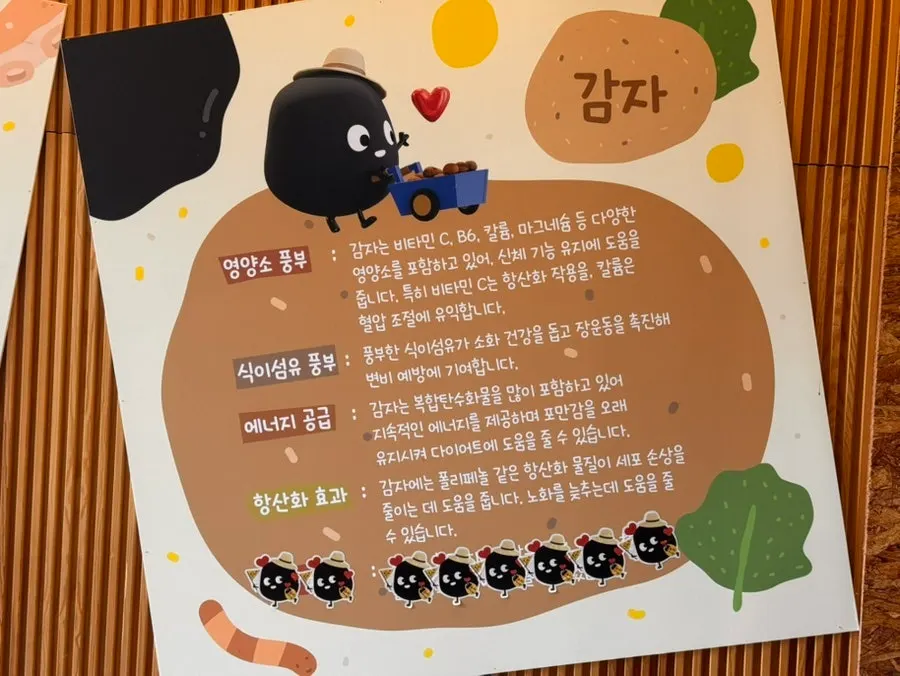 감자
영양소 풍부 : 감자는 비타민 C, B6, 칼륨, 마그네슘 등 다양한
영양소를 포함하고 있어, 신체 기능 유지에 도움을
줍니다. 특히 비타민 C는 항산화 작용을, 칼륨은
혈압 조절에 유익합니다.
식이섬유 풍부 : 풍부한 식이섬유가 소화 건강을 돕고 장운동을 촉진해
변비 예방에 기여합니다.
에너지 공급 : 감자는 복합탄수화물을 많이 포함하고 있어
지속적인 에너지를 제공하며 포만감을 오래
유지시켜 다이어트에 도움을 줄 수 있습니다.
항산화 효과 : 감자에는 폴리페놀 같은 항산화 물질이 세포 손상을
줄이는 데 도움을 줍니다. 노화를 늦추는데 도움을 줄
수 있습니다.
: